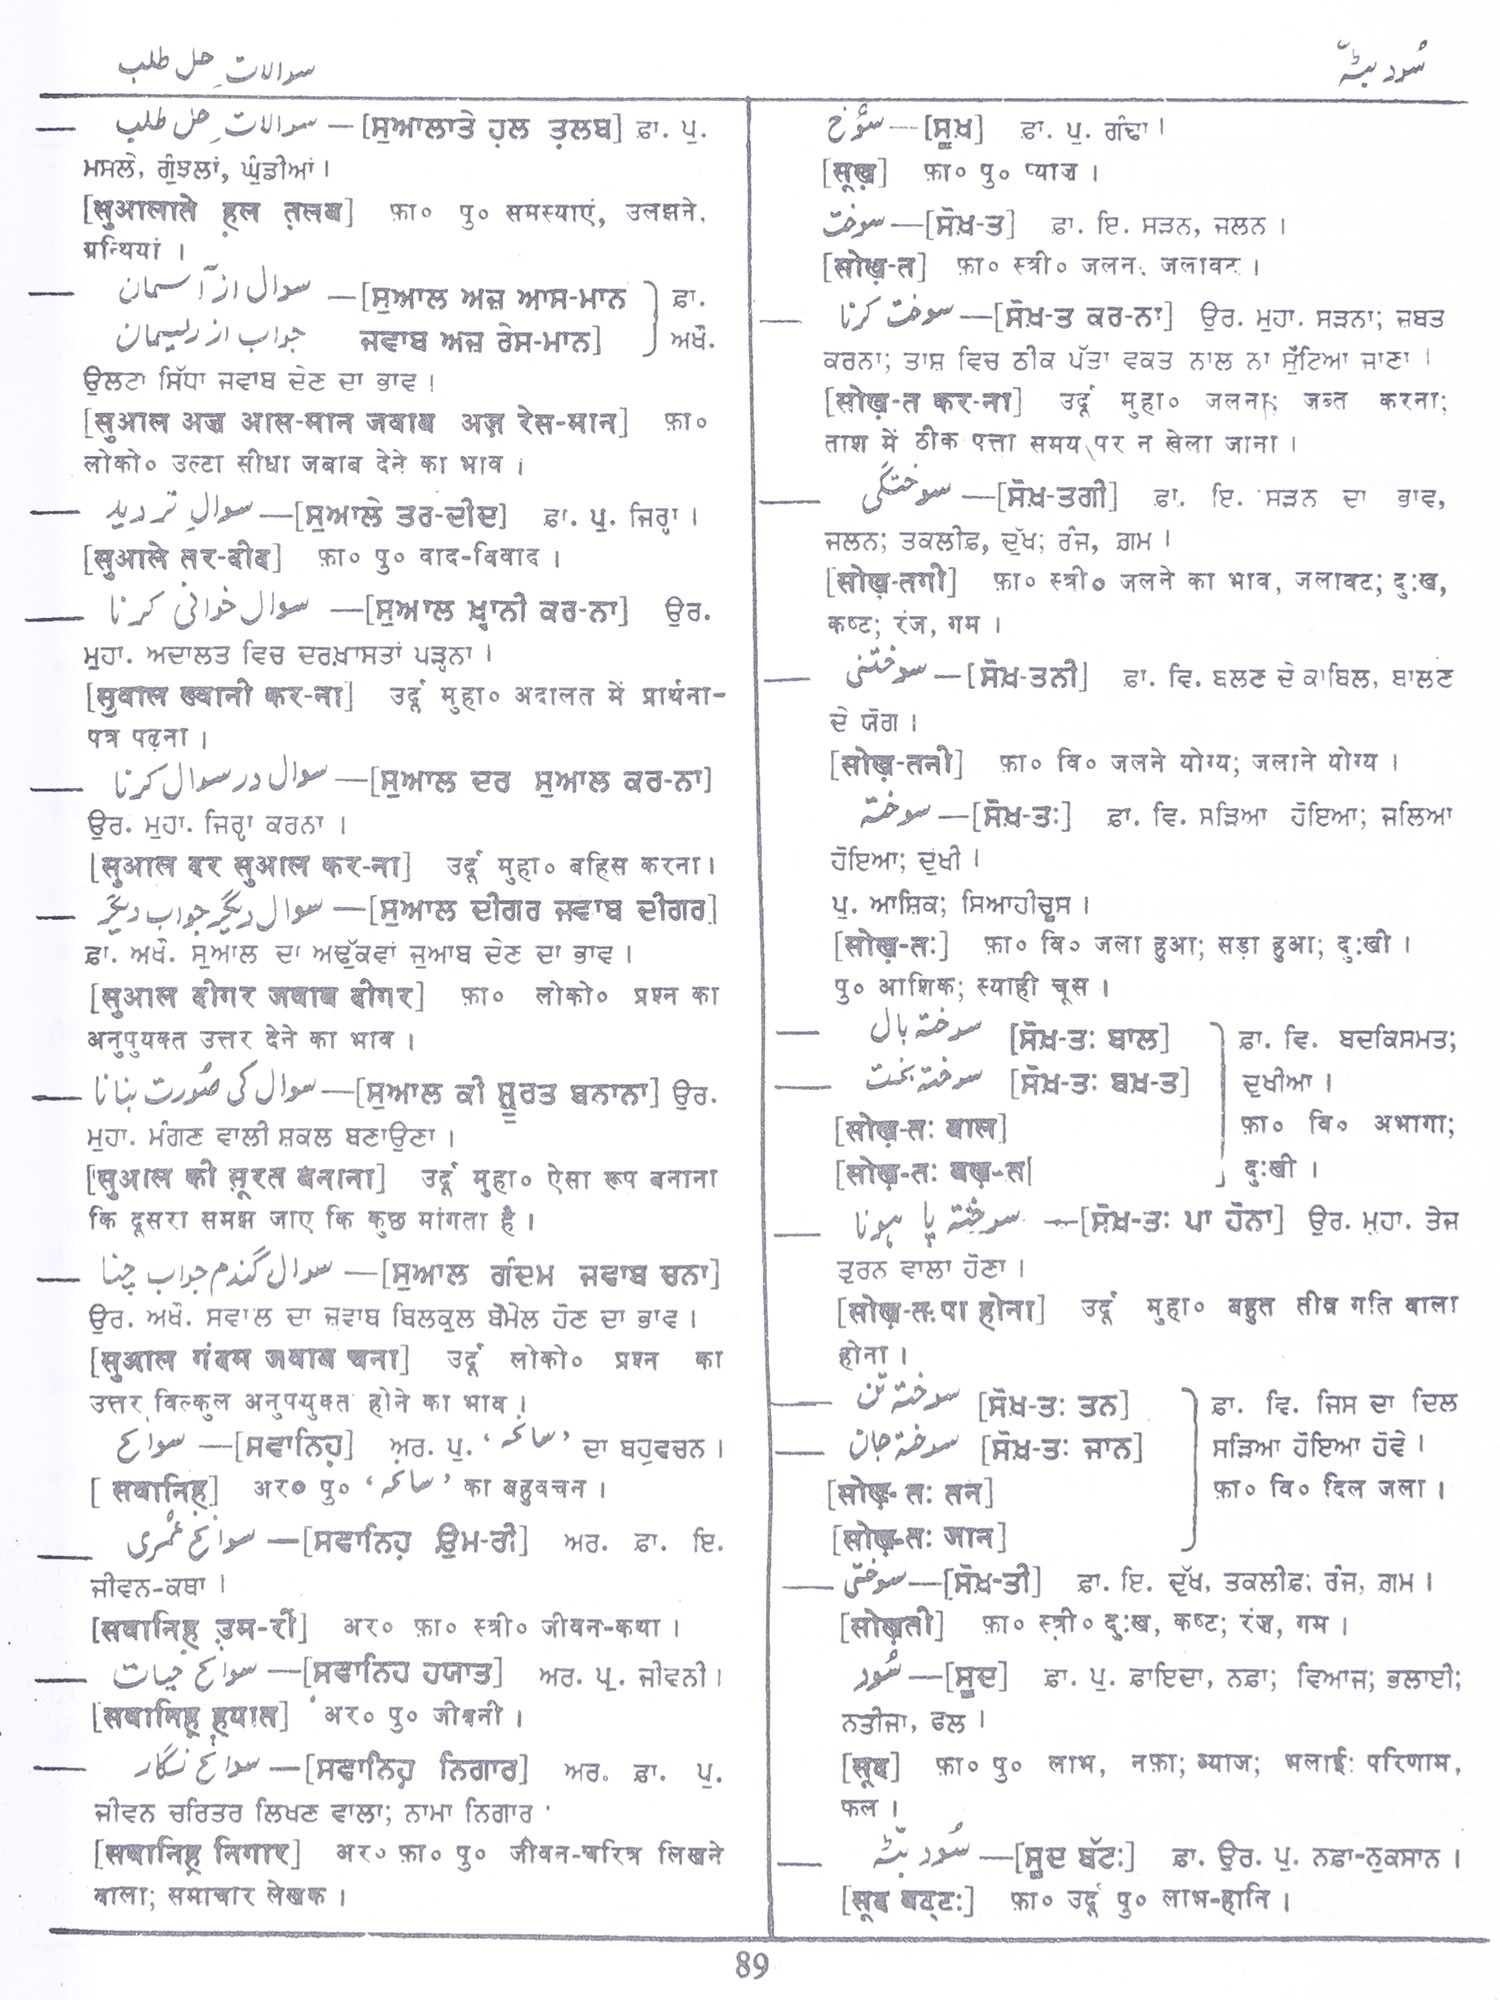 سوالاتِ حل طلب
سُود بٹہّ
سوالاتِ حل طلب —[ਸੁਆਲਾਤੇ ਹ਼ਲ ਤ਼ਲਬ] ਫ਼ਾ. ਪੁ.
ਮਸਲੇ, ਗੁੰਝਲਾਂ, ਘੁੰਡੀਆਂ।
[सुआलाते ह़ल त़लब] फ़ा० पु० समस्याएं, उलझनें,
ग्रन्थियां ।
سوال از آسمان —[ਸੁਆਲ ਅਜ਼ ਆਸ-ਮਾਨ ਫ਼ਾ.
جواب از ریسمان ਜਵਾਬ ਅਜ਼ ਰੇਸ-ਮਾਨ] ਅਖੌ.
ਉਲਟਾ ਸਿੱਧਾ ਜਵਾਬ ਦੇਣ ਦਾ ਭਾਵ।
[सुआल अज़ आस-मान जवाब अज़ रेस-मान] फ़ा०
लोको० उल्टा सीधा जबाब देने का भाव ।
سوالِ تردید —[ਸੁਆਲੇ ਤਰ-ਦੀਦ] ਫ਼ਾ. ਪੁ. ਜਿਰ੍ਹਾ।
[सुआले तर-दीद] फ़ा० पु० वाद-विवाद ।
سوال خوانی کرنا —[ਸੁਆਲ ਖ਼੍ਵਾਨੀ ਕਰ-ਨਾ] ਉਰ.
ਮੁਹਾ. ਅਦਾਲਤ ਵਿਚ ਦਰਖ਼ਾਸਤਾਂ ਪੜ੍ਹਨਾ।
[सुवाल ख्वानी कर-ना] उर्दू मुहा० अदालत में प्रार्थना-
पत्र पढ़ना ।
سوال در سوال کرنا —[ਸੁਆਲ ਦਰ ਸੁਆਲ ਕਰ-ਨਾ]
ਉਰ. ਮੁਹਾ. ਜਿਰ੍ਹਾ ਕਰਨਾ।
[सुआल दर सुआल कर-ना] उर्दू मुहा० बहिस करना।
سوال دیگر جواب دیگر —[ਸੁਆਲ ਦੀਗਰ ਜਵਾਬ ਦੀਗਰ]
ਫ਼ਾ. ਅਖੌ. ਸੁਆਲ ਦਾ ਅਢੁੱਕਵਾਂ ਜੁਆਬ ਦੇਣ ਦਾ ਭਾਵ।
[सुआल दीगर जवाब दीगर] फ़ा० लोको० प्रश्न का
अनुपुयक्त उत्तर देने का भाव ।
سوال کی صُورت بنانا —[ਸੁਆਲ ਕੀ ਸੂਰਤ ਬਨਾਨਾ] ਉਰ.
ਮੁਹਾ. ਮੰਗਣ ਵਾਲੀ ਸ਼ਕਲ ਬਣਾਉਣਾ।
[सुआल की सूरत बनाना] उर्दू मुहा० ऐसा रूप बनाना
कि दूसरा समझ जाए कि कुछ मांगता है।
سوال گندم جواب چنا —[ਸੁਆਲ ਗੰਦਮ ਜਵਾਬ ਚਨਾ]
ਉਰ. ਅਖੌ. ਸਵਾਲ ਦਾ ਜਵਾਬ ਬਿਲਕੁਲ ਬੇਮੇਲ ਹੋਣ ਦਾ ਭਾਵ।
[सुआल गंदम जवाब चना] उर्दू लोको० प्रश्न का
उत्तर बिल्कुल अनुपयुक्त होने का भाव।
سوانح —[ਸਵਾਨਿਹ਼] ਅ਼ਰ. ਪੁ. ‘سانحہ’ ਦਾ ਬਹੁਵਚਨ।
[ सवानिह़] अर० पु० ‘سانحہ’ का बहुवचन ।
سوانح عُمری —[ਸਵਾਨਿਹ਼ ਉਮ-ਰੀ] ਅਰ. ਫ਼ਾ. ਇ.
ਜੀਵਨ-ਕਥਾ।
[सवानिह़ उ़म-री] अर० फ़ा० स्त्री० जीवन-कथा ।
سوانح حیات —[ਸਵਾਨਿਹ ਹਯਾਤ] ਅਰ. ਪੁ. ਜੀਵਨੀ।
[सवानिह़ ह़यात] अर० पु० जीवनी ।
سوانح نگار —[ਸਵਾਨਿਹ਼ ਨਿਗਾਰ] ਅਰ. ਫ਼ਾ. ਪੁ.
ਜੀਵਨ ਚਰਿਤਰ ਲਿਖਣ ਵਾਲਾ; ਨਾਮਾ ਨਿਗਾਰ
[सवानिह़ निगार] अर० फ़ा० पु० जीवन-चरित्र लिखने
वाला; समाचार लेखक ।
سوُخ —[ਸੂਖ਼] ਫ਼ਾ. ਪੁ. ਗੰਢਾ।
[सूख़] फ़ा० पु० प्याज़ ।
سوخت —[ਸੋਖ਼-ਤ] ਫ਼ਾ. ਇ. ਸੜਨ, ਜਲਨ।
[सोख़-त] फ़ा० स्त्री० जलन, जलावट ।
سوخت کرنا —[ਸੋਖ਼-ਤ ਕਰ-ਨਾ] ਉਰ. ਮੁਹਾ. ਸੜਨਾ; ਜ਼ਬਤ
ਕਰਨਾ; ਤਾਸ਼ ਵਿਚ ਠੀਕ ਪੱਤਾ ਵਕਤ ਨਾਲ ਨਾ ਸੁੱਟਿਆ ਜਾਣਾ।
[सोख़-त कर-ना] उर्दू मुहा० जलना; जब्त करना;
ताश में ठीक पत्ता समय पर न खेला जाना ।
سوختگی —[ਸੋਖ਼-ਤਗੀ] ਫ਼ਾ. ਇ. ਸੜਨ ਦਾ ਭਾਵ,
ਜਲਨ; ਤਕਲੀਫ਼, ਦੁੱਖ; ਰੰਜ, ਗ਼ਮ।
[सोख़-तगी] फ़ा० स्त्री० जलने का भाव, जलावट; दु:ख,
कष्ट; रंज, गम ।
سوختنی —[ਸੋਖ਼-ਤਨੀ] ਫ਼ਾ. ਵਿ. ਬਲਣ ਦੇ ਕਾਬਿਲ, ਬਾਲਣ
ਦੇ ਯੋਗ।
[सोख़-तनी] फ़ा० वि० जलने योग्य; जलाने योग्य ।
سوختہ —[ਸੋਖ਼-ਤ:] ਫ਼ਾ. ਵਿ. ਸੜਿਆ ਹੋਇਆ; ਜਲਿਆ
ਹੋਇਆ; ਦੁਖੀ।
ਪੁ. ਆਸ਼ਿਕ; ਸਿਆਹੀਚੂਸ।
[सोख़-त:] फ़ा० वि० जला हुआ; सड़ा हुआ; दु:खी ।
पु० आशिक; स्याही चूस ।
سوختہ بال [ਸੋਖ਼-ਤ: ਬਾਲ] ਫ਼ਾ. ਵਿ. ਬਦਕਿਸਮਤ;
سوختہ بخت [ਸੋਖ਼-ਤ: ਬਖ਼-ਤ] ਦੁਖੀਆ।
[सोख़-त: बाल] फ़ा० वि० अभागा;
[सोख़-त: बख़-त] दु:खी ।
سوختہ پا ہونا —[ਸੋਖ਼-ਤ: ਪਾ ਹੋਨਾ] ਉਰ. ਮੁਹਾ. ਤੇਜ਼
ਤੁਰਨ ਵਾਲਾ ਹੋਣਾ।
[सोख़-त: पा होना] उर्दू मुहा० बहुत तीव्र गति वाला
होना ।
سوختہ تن [ਸੋਖ਼-ਤ: ਤਨ] ਫ਼ਾ. ਵਿ. ਜਿਸ ਦਾ ਦਿਲ
سوختہ جان [ਸੋਖ਼-ਤ: ਜਾਨ] ਸੜਿਆ ਹੋਇਆ ਹੋਵੇ।
[सोख़-त: तन] फ़ा० वि० दिल जला ।
[सोख़-त: जान]
سوختی —[ਸੋਖ਼-ਤੀ] ਫ਼ਾ. ਇ. ਦੁੱਖ, ਤਕਲੀਫ਼; ਰੰਜ, ਗ਼ਮ।
[सोख़ती] फ़ा० स्त्री० दु:ख, कष्ट; रंज, गम ।
سُود —[ਸੂਦ] ਫ਼ਾ. ਪੁ. ਫ਼ਾਇਦਾ, ਨਫ਼ਾ; ਵਿਆਜ; ਭਲਾਈ;
ਨਤੀਜਾ, ਫਲ।
[सूद] फ़ा० पु० लाभ, नफ़ा; ब्याज; भलाई; परिणाम,
फल ।
سُود بٹہّ —[ਸੂਦ ਬੱਟ:] ਫ਼ਾ. ਉਰ. ਪੁ. ਨਫ਼ਾ-ਨੁਕਸਾਨ।
[सूद बट्ट:] फ़ा० उर्दू पु० लाभ-हानि ।
89